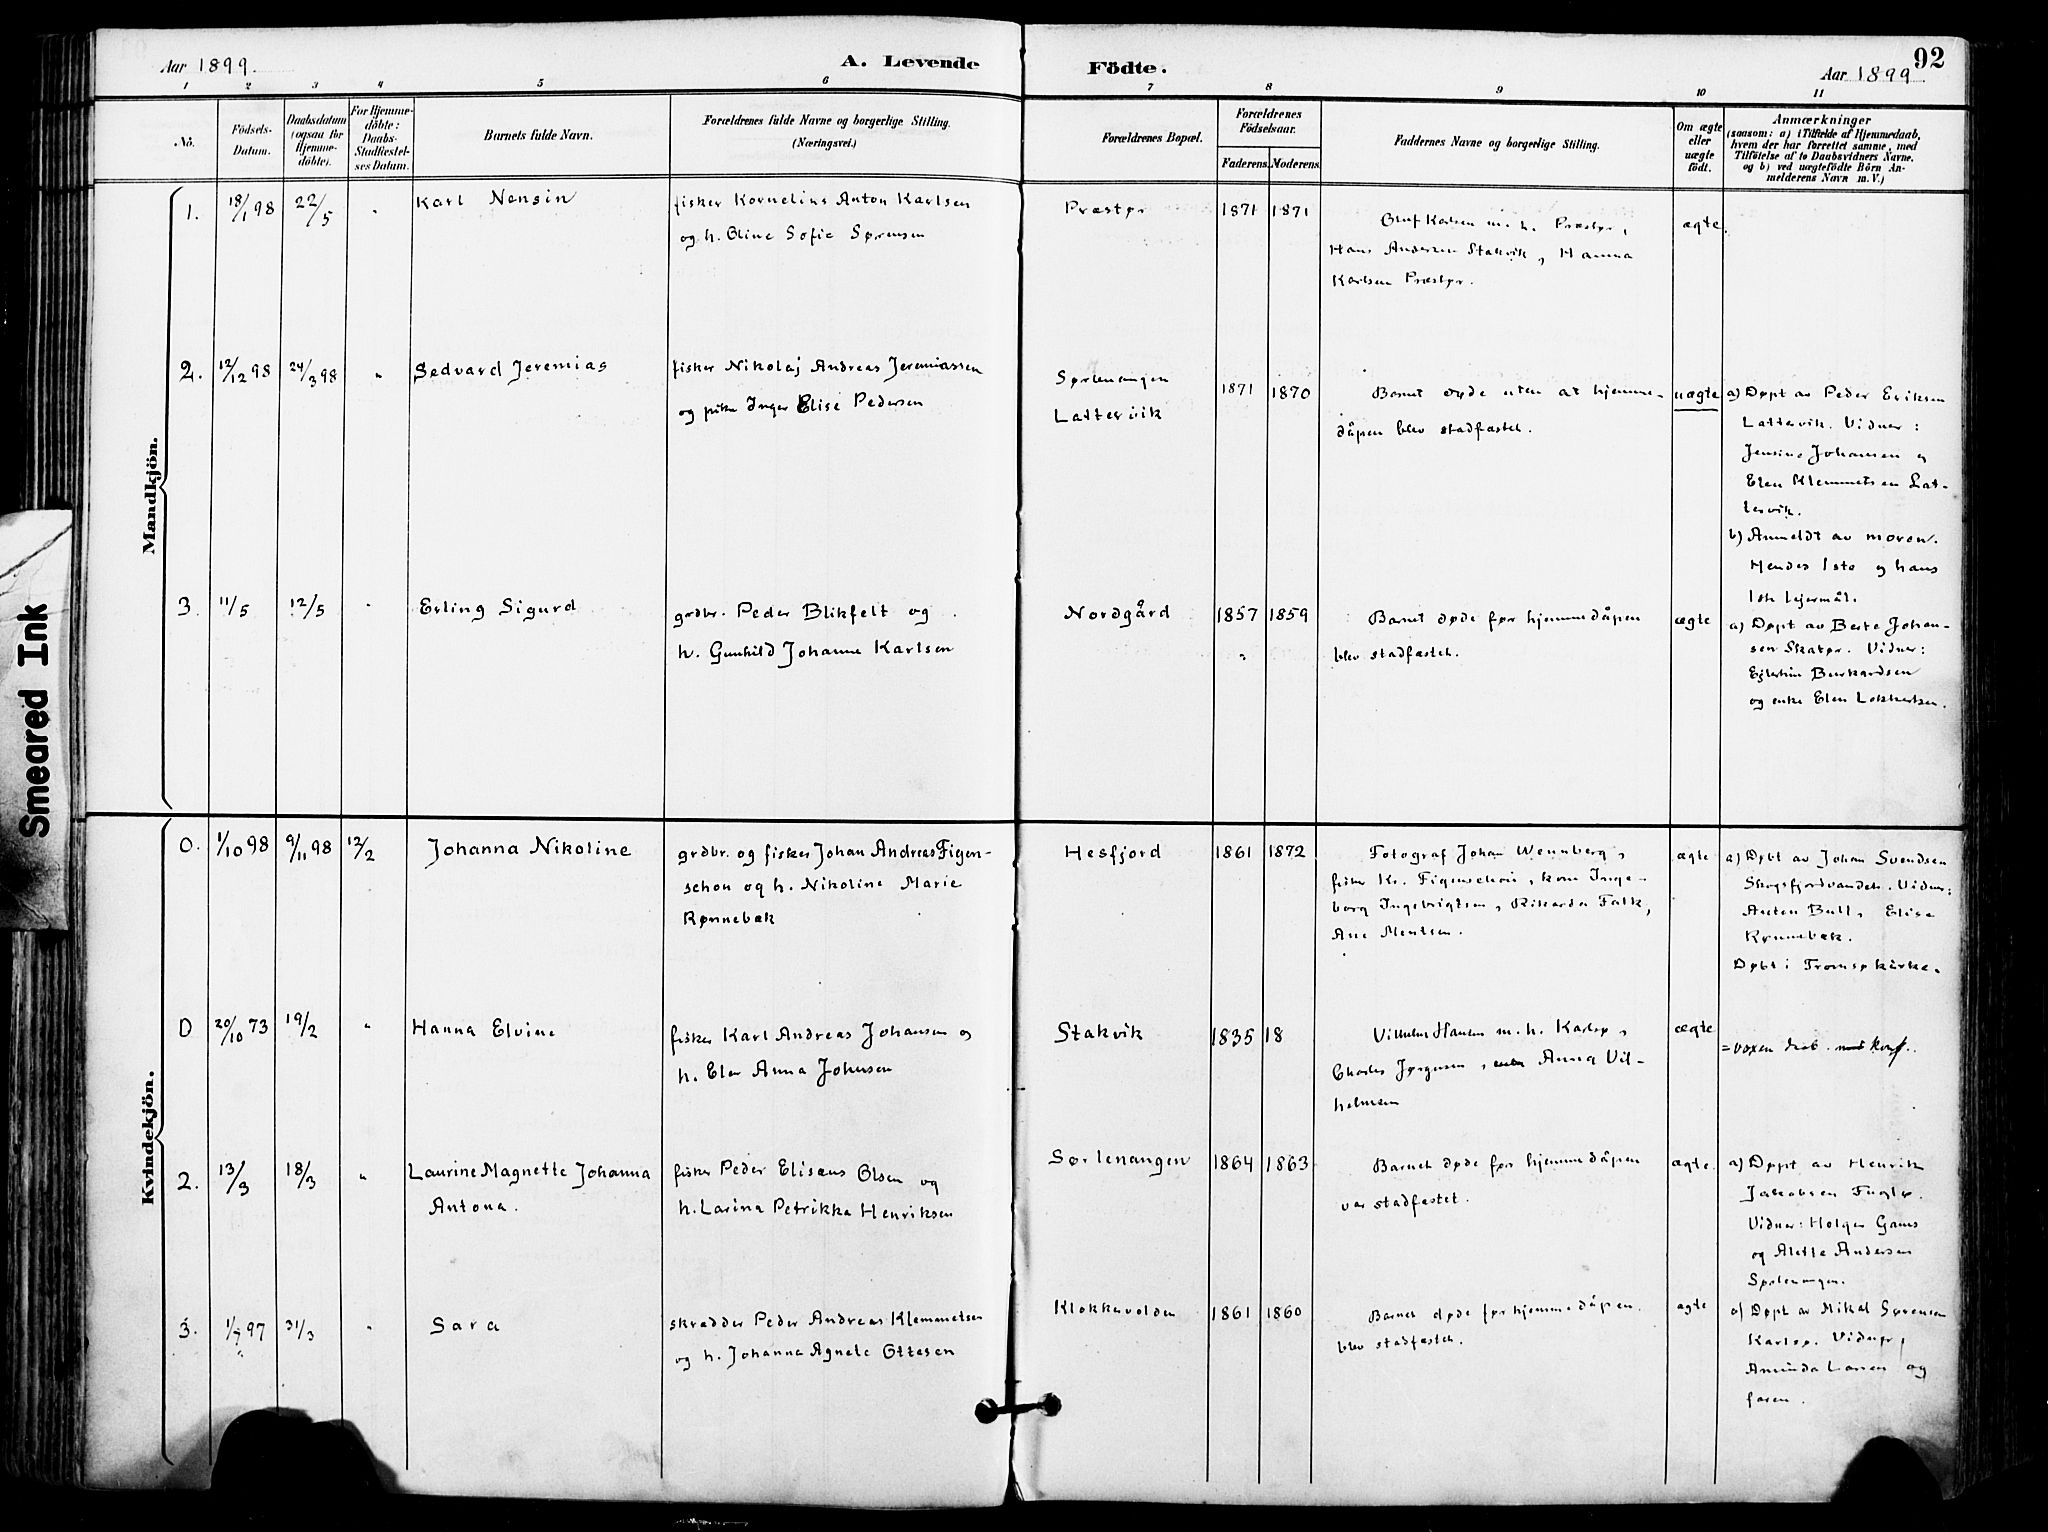 Aar 1899.
A. Levende
Födte.
92
Aar 1899
1 2 3 4 5 6 7 8 9 10 11
Nö.
Födsels-
Datum.
Daabsdatum
(ogsaa for
Hjemme-
döbte).
For Hjemme-
döbte:
Daabs-
Stadfæstel-
ses Datum.
Barnets fulde Navn.
Forældrenes fulde Navne og borgerlige Stilling.
(Næringsvei.)
Forældrenes Bopæl.
Forældrenes
Födselsaar.
Faderens. Moderens.
Faddernes Navne og borgerlige Stilling.
Om ægte
eller
uægte
födt.
Anmærkninger
(saasom: a) i Tilfælde af Hjemmedaab,
hvem der har forrettet samme, med
Tilföielse af to Daabsvidners Navne,
og b) ved uægtefödte Börn An-
melderens Navn m. V.)
Mandkjön.
1. 18/1 98 22/5 "
Karl Nensin
fisker Kornelius Anton Karlsen
og h. Oline Sofie Sørensen
Præstør 1871 1871
Oluf Karlsen m. h. Præstør,
Hans Andersen Stakvik, Hanna
Karlsen Præstør.
ægte.
2. 12/12 98 24/3 98 "
Sedvard Jeremias
fisker Nikolaj Andreas Jeremiassen
og pike Inger Elise Pedersen
Sørlenangen
Lattervik
1871 1870
Barnet døde uten at hjemme-
dåpen blev stadfæstet.
uægte
a) Døpt av Peder Eriksen
Lattervik. Vidner:
Jensine Johansen og
Elen Klemmetsen Lat-
tervik.
b) Anmeldt av moren.
Hendes 1ste og hans
1ste lejermål.
3. 11/5 12/5 "
Erling Sigurd
grdbr. Peder Blikfelt og
h. Gunhild Johanne Karlsen
Nordgård 1857 1859
"
Barnet døde før hjemmedåpen
blev stadfæstet.
ægte
a) Døpt av Berte Johan-
sen Skatør. Vidner:
Burkardsen
og enke Elen
Kvindekjön.
0. 1/10 98 9/11 98 12/2
Johanna Nikoline
grdbr. og fisker Johan Andreas Figen-
schou og h. Nikoline Marie
Rønnebæk
Hesfjord 1861 1872
Fotograf Johan Wennberg,
fisker Kr. Figenschou, kone Inge-
borg Ingebrigtsen, Rikarda Falk,
Ane Mentsen.
ægte
a) Døbt av Johan Svendsen
Skogsfjordvandet. Vidner:
Anton Bull, Elise
Rønnebæk.
Døbt i Tromsø kirke.
0 20/10 73 19/2 "
Hanna Elvine
fisker Karl Andreas Johansen og
h. Elen Anna Johnsen
Stakvik 1835 18
Vilhelm Hansen m. h. Karlsø,
Charles Jørgensen, Anna Vil-
helmsen
ægte
= voxen
2. 13/3 18/3 "
Laurine Magnette Johanna
Antona.
fisker Peder Elisæus Olsen og
h. Larina Petrikka Henriksen
Sørlenangen 1864 1863
Barnet døde før hjemmedåpen
var stadfæstet.
ægte.
a) Døpt av Henrik
Jakobsen Fuglø.
Vidner: Holger Gams
og Alette Andersen
Sørlenangen.
3. 97 31/3 "
Sara
skrædder Peder Andreas Klemmetsen
og h. Johanna Agnete Ottesen
Klokkevolden 1861 1860
Barnet døde før hjemmedåpen
blev stadfæstet.
ægte
a) Døpt av Mikal Sørensen
Karlsø. Vidner,
Aminda Larsen og
faren.
Smeared Ink